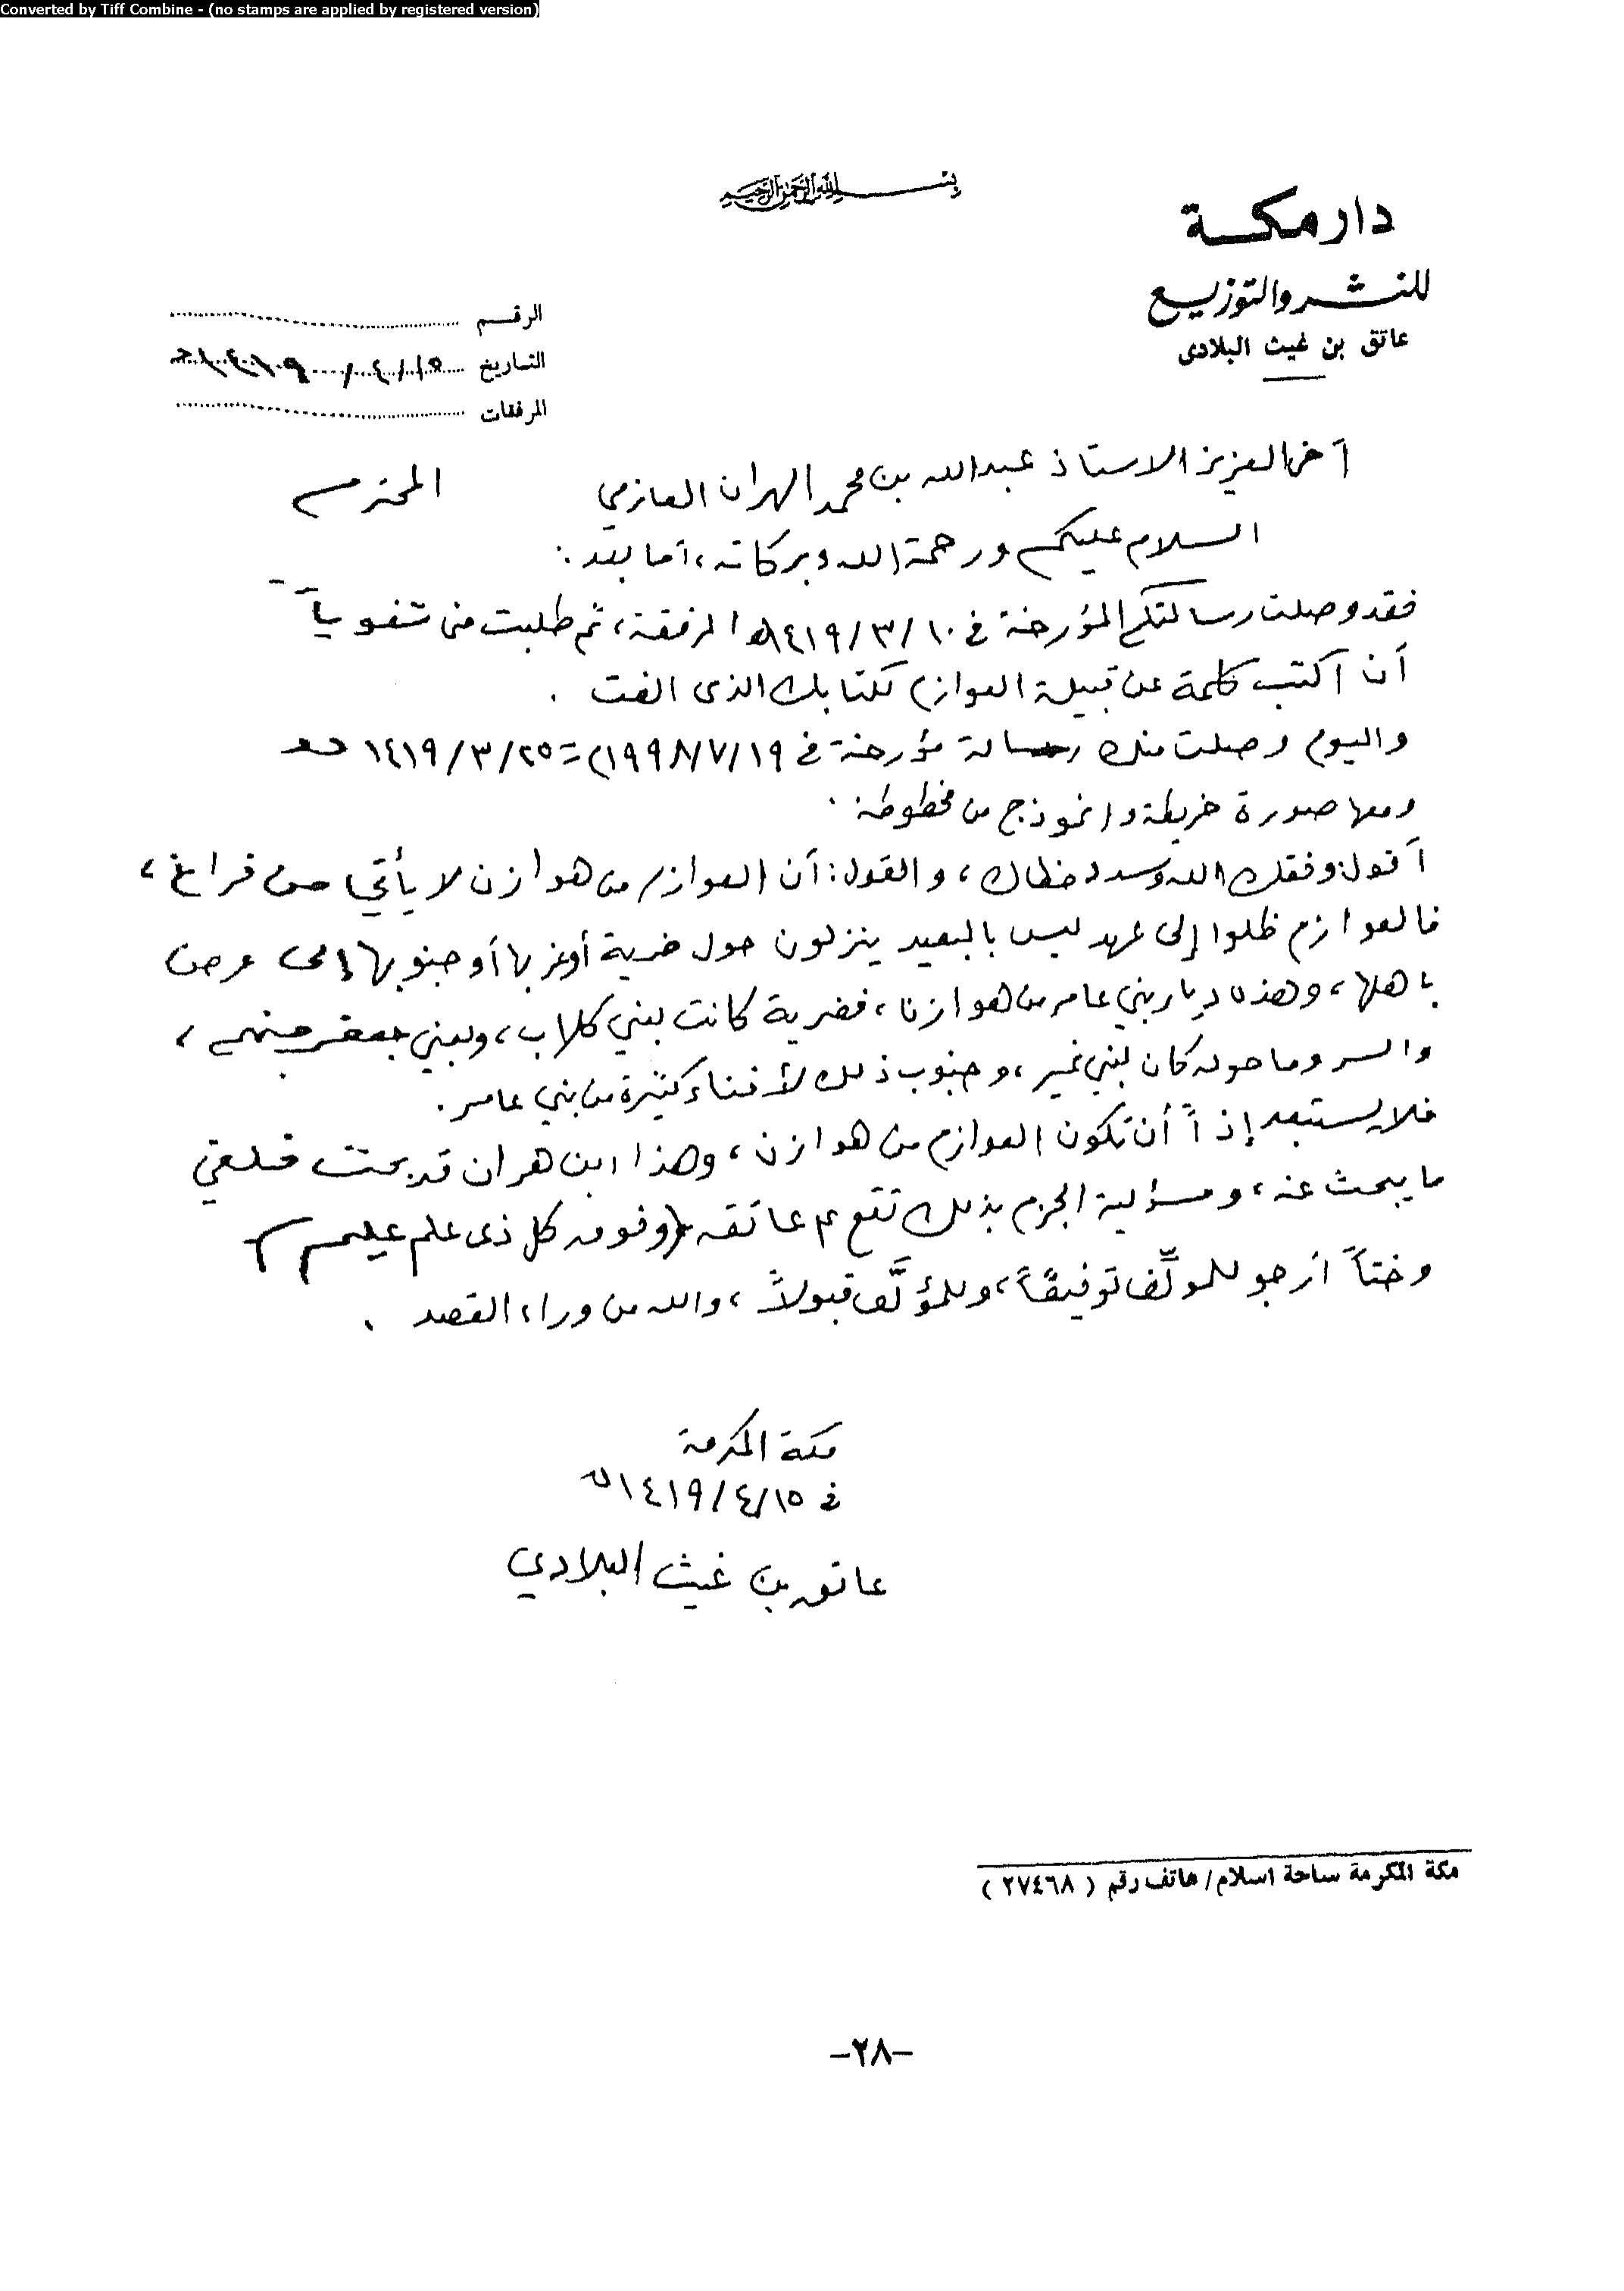 Converted by Tiff Combine - (no stamps are applied by registered version)
بسم الله الرحمن الرحيم
دار مكة
للنشر والتوزيع
عاتق بن غيث البلادى
الرقم
التاريخ ١٥/٤/١٤١٩هـ
المرفقات
أخي العزيز الاستاذ عبدالله بن محمد الهران العازمي المحترم
السلام عليكم ورحمة الله وبركاته، أما بعد:
فقد وصلت رسالتكم المؤرخة في ١٠/٣/١٤١٩هـ المرفقة، ثم طلبت مني شفوياً
أن أكتب كلمة عن قبيلة العوازم لكتابك الذى الفت.
واليوم وصلت منك رسالة مؤرخة في ١٩/٧/١٩٩٨م = ٢٥/٣/١٤١٩هـ
ومعها صورة خريطة وانموذج من مخطوطة.
أقول وفقك الله وسدد خطاك، والقول: أن العوازم من هوازن لا يأتي من فراغ،
فالعوازم ظلوا إلى عهد ليس بالبعيد ينزلون حول ضرية أو غربها أو جنوبها إلى عرض
باهلها، وهذه ديار بني عامر من هوازن، فضرية كانت لبني كلاب، ولبني جعفر منهم،
والسر وما حوله كان لبني نمير، وجنوب ذلك لأفناء كثيرة من بني عامر.
فلا يستبعد إذاً أن تكون العوازم من هوازن، وهذا ابن هران قد بحث فلقي
ما يبحث عنه، ومسؤلية الجزم بذلك تقع على عاتقه (وفوق كل ذى علم عليم)
وختاً أرجو للمولِّف توفيقاً، وللمؤلَّف قبولاً، والله من وراء القصد.
مكة المكرمة
في ١٥/٤/١٤١٩هـ
عاتق بن غيث البلادي
مكة المكرمة ساحة اسلام/ هاتف رقم (٢٧٤٦٨)
-٢٨-